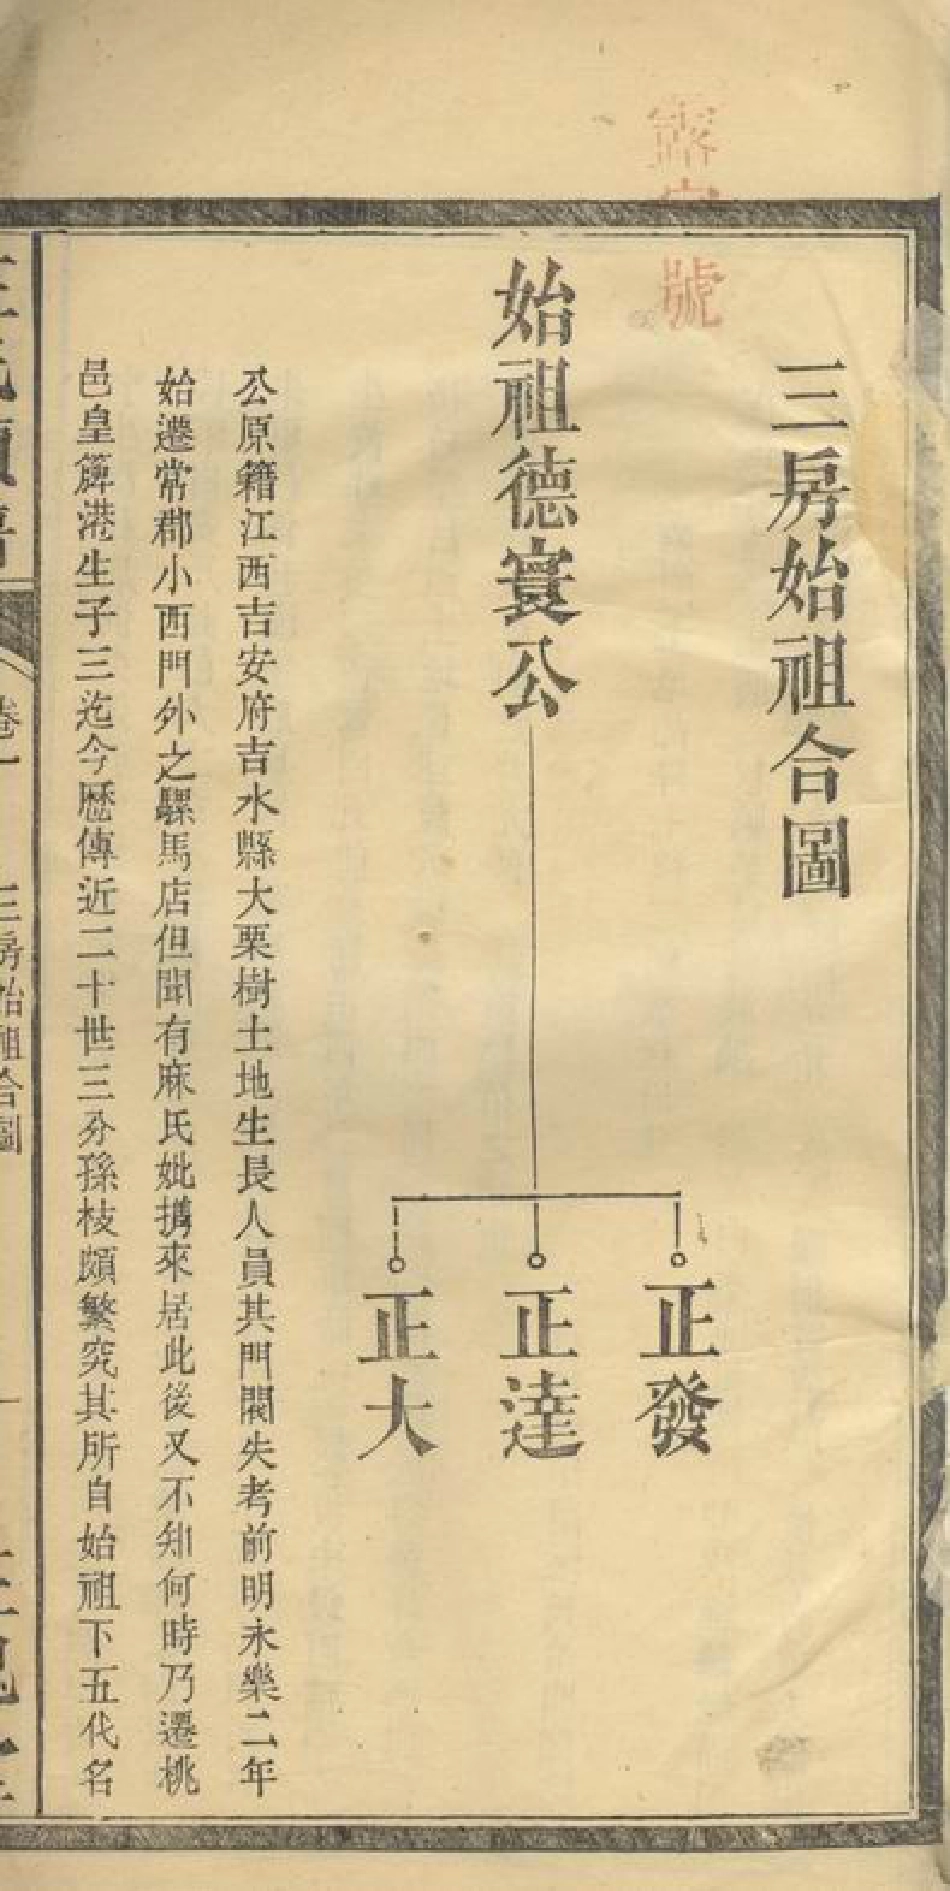 號
三房始祖合圖
始祖德寰公
正發
正達
正大
公原籍江西吉安府吉水縣大栗樹土地生長人員其門閥失考前明永樂二年
始遷常郡小西門外之騾馬店但聞有麻氏妣攜來居此後又不知何時乃遷桃
邑皇簰港生子三迄今歷傳近二十世三分孫枝頗繁究其所自始祖下五代名
卷一
三房始祖合圖